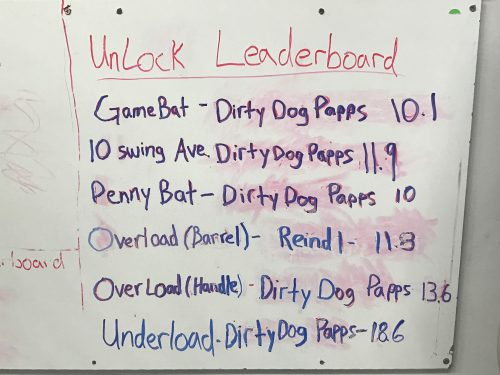 Unlock Leaderboard
GameBat - Dirty Dog Papps 10.1
10 swing Ave. Dirty Dog Papps 11.9
Penny Bat - Dirty Dog Papps 10
Overload (Barrel) - Reindl - 11.3
rboard
OverLoad (Handle) - Dirty Dog Papps 13.6
Underload - Dirty Dog Papps - 18.6